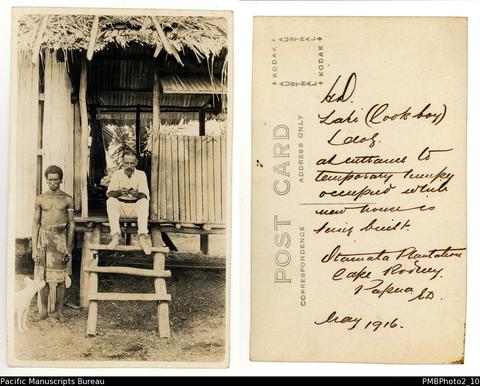 KODAK
AUSTRAL
KODAK
AUSTRAL
POST CARD
CORRESPONDENCE
ADDRESS ONLY
(Cook boy)
&dog.
at entrance to
temporary humpy
occupied while
new house is
being built.
Plantation
Cape Rodney.
Papua
May 1916.
Pacific Manuscripts Bureau
PMBPhoto2_10